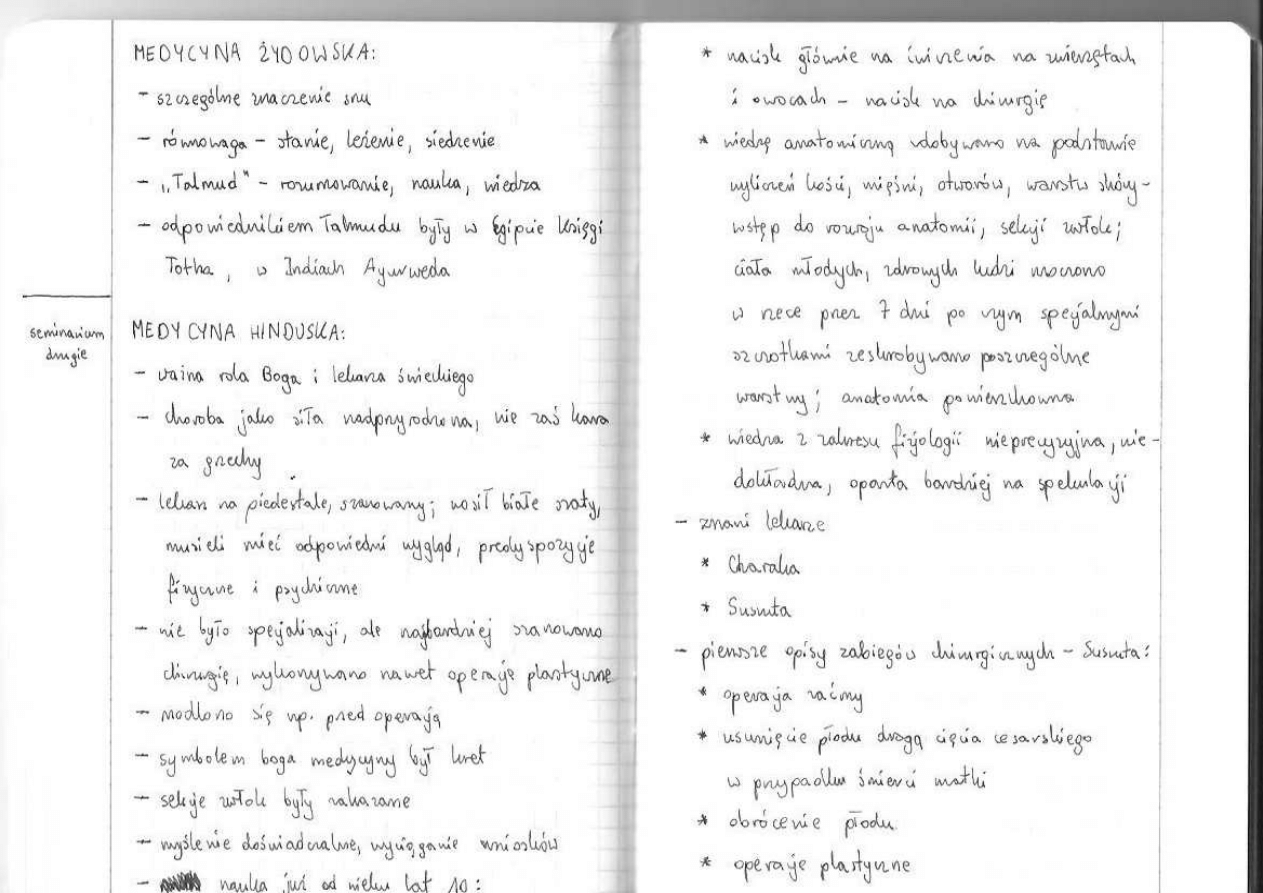 MEDYCYNA ŻYDOWSKA:
- szczególne znaczenie snu
- równowaga - stanie, leżenie, siedzenie
- „Talmud" - rozumowanie, nauka, wiedza
- odpowiednikiem Talmudu były w Egipcie Księgi
Totha, w Indiach Ayurweda
seminarium
drugie
MEDYCYNA HINDUSKA:
- ważna rola Boga i lekarza świeckiego
- choroba jako siła nadprzyrodzona, nie zaś kara
za grzechy
- lekarz na piedestale, szanowany; nosił białe szaty,
musieli mieć odpowiedni wygląd, predyspozycje
fizyczne i psychiczne
- nie było specjalizacji, ale najbardziej szanowano
chirurgię, wykonywano nawet operacje plastyczne
- modlono się np. przed operacją
- symbolem boga medycyny był kret
- sekcje zwłok były zakazane
- myślenie doświadczalne, wyciąganie wniosków
- nauka już od wieku lat 10:
* nacisk głównie na ćwiczenia na zwierzętach
i owocach - nacisk na chirurgię
* wiedzę anatomiczną zdobywano na podstawie
wyliczeń kości, mięśni, otworów, warstw skóry -
wstęp do rozwoju anatomii, sekcji zwłok;
ciała młodych, zdrowych ludzi moczono
w rzece przez 7 dni po czym specjalnymi
szczotkami zeskrobywano poszczególne
warstwy; anatomia powierzchowna
* wiedza z zakresu fizjologii nieprecyzyjna, nie-
dokładna, oparta bardziej na spekulacji
- znani lekarze
* Charaka
* Susruta
- pierwsze opisy zabiegów chirurgicznych - Susruta:
* operacja zaćmy
* usunięcie płodu drogą cięcia cesarskiego
w przypadku śmierci matki
* obrócenie płodu
* operacje plastyczne